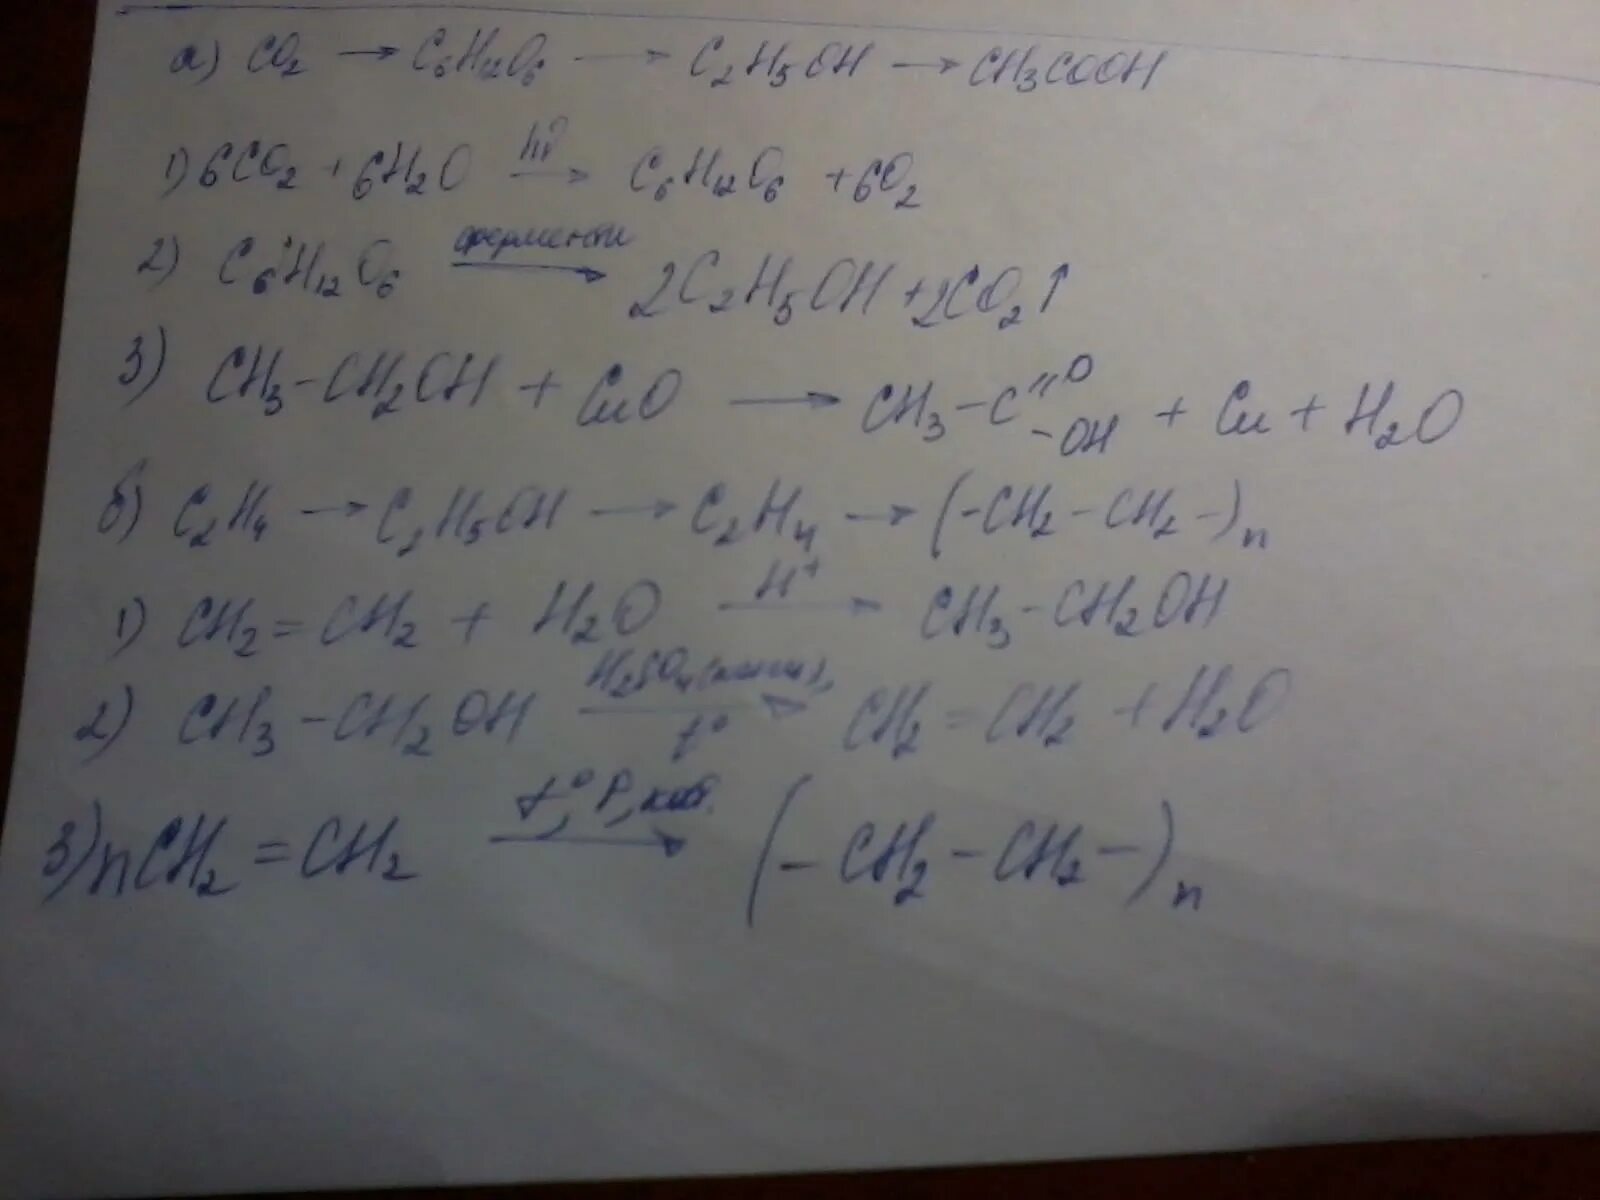 а) CO₂ → C₆H₁₂O₆ → C₂H₅OH → CH₃COOH
1) 6CO₂ + 6H₂O →(hν) C₆H₁₂O₆ + 6O₂
2) C₆H₁₂O₆ →(ферменты) 2C₂H₅OH + 2CO₂↑
3) CH₃–CH₂OH + CuO → CH₃–C(=O)–OH + Cu + H₂O
б) C₂H₄ → C₂H₅OH → C₂H₄ → (–CH₂–CH₂–)n
1) CH₂=CH₂ + H₂O →(H⁺) CH₃–CH₂OH
2) CH₃–CH₂OH →(H₂SO₄, t°) CH₂=CH₂ + H₂O
3) nCH₂=CH₂ →(t°, P, кат.) (–CH₂–CH₂–)n